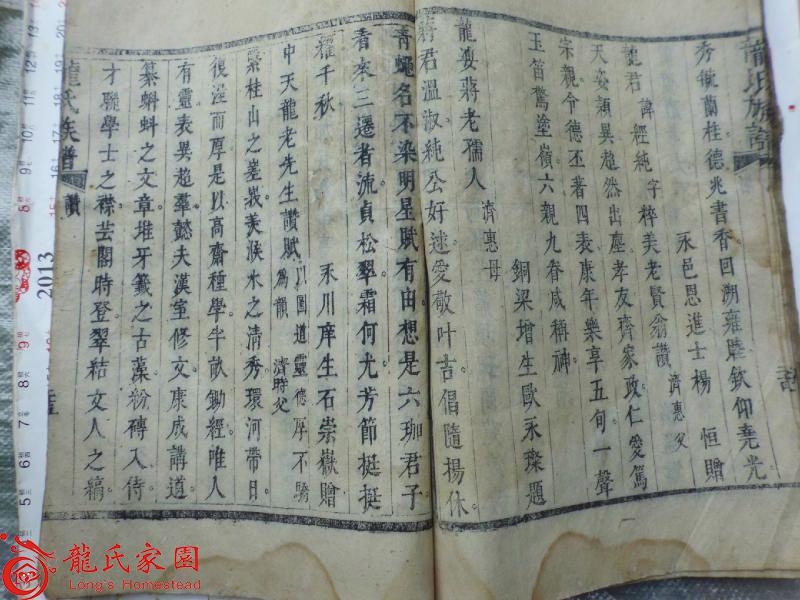 龍氏族譜
秀徵蘭桂德兆書香回溯雍陸欽仰堯光
永邑恩進士楊 恒贈
龍君 諱經純 字粹美老賢翁讚 濟惠父
天姿穎異超然出塵孝友齊家政仁愛篤
宗親令德丕著四表康年樂享五旬一聲
玉笛驚塗嶺六親九眷咸稱神
銅梁增生歐永璨題
龍婆蔣老孺人 濟惠母
蔣君溫淑純公好逑愛敬叶吉倡隨揚休
青蠅名不染明星賦有由想是六珈君子
看來三遷者流貞松翠霜何尤芳節挺挺
耀千秋
永川庠生石崇嶽贈
中天龍老先生讚賦 以圓道靈德厚不驕為韻 濟時父
紫桂山之峩美溪水之清秀環河帶日
後渥而厚是以高齋種學半畝鋤經唯人
有靈表異超羣懿夫漢室修文康成講道
纂蝌蚪之文章堆牙籤之古藻粉磚入侍
才聯學士之襟芸閣時登翠結文人之縞
龍氏族譜
讚
2013
龍氏家園
Long's Homestead